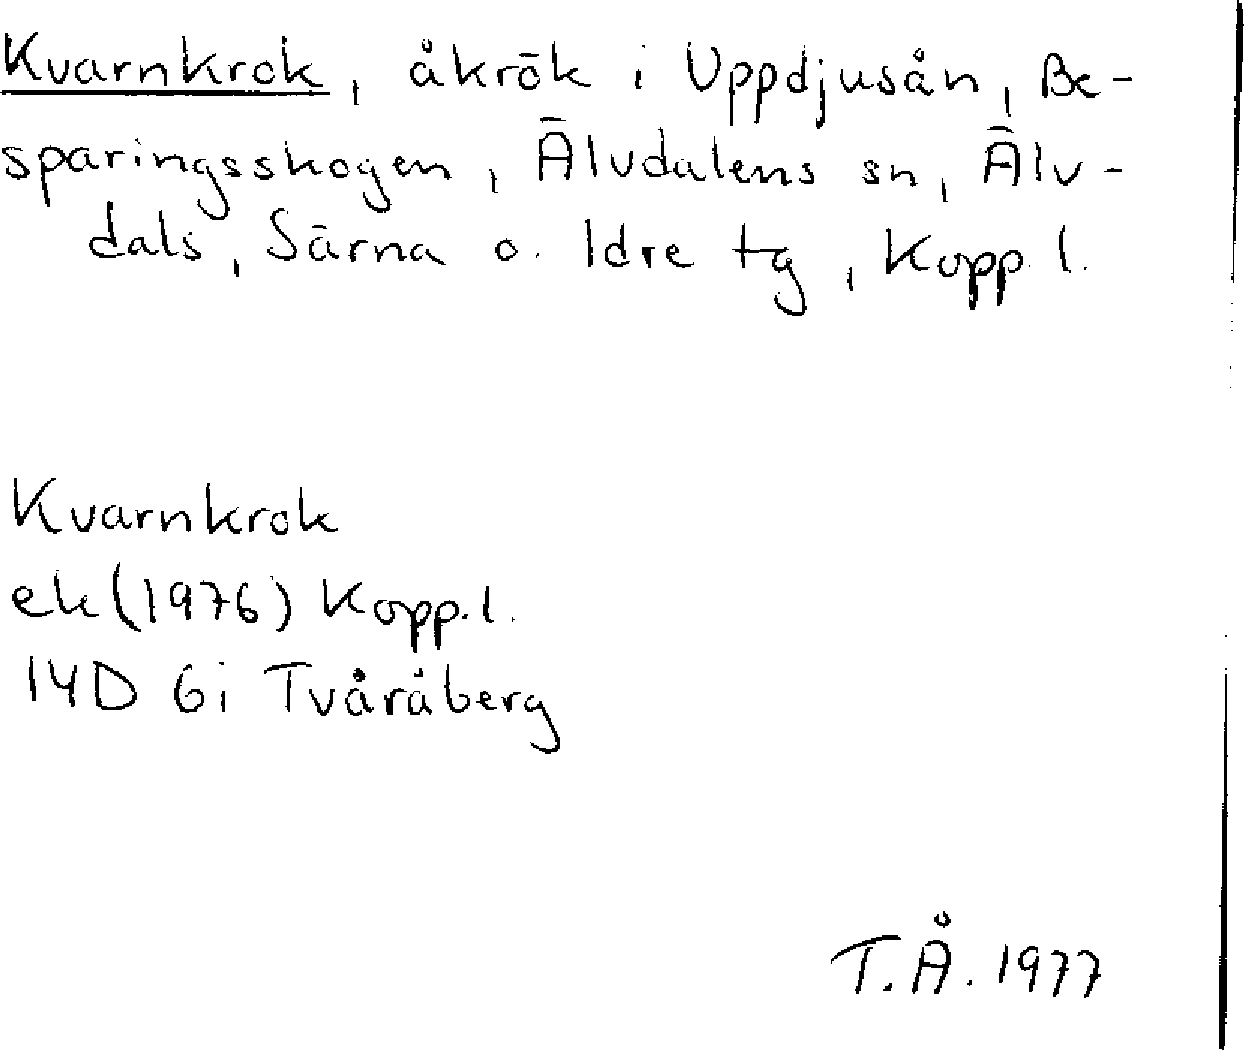 Kvarnkrok, åkrök i Uppdjusån, Be-
sparingsskogen, Älvdalens sn, Älv-
dals, Särna o. Idre tg, Kopp. l.
Kvarnkrok
ek (1976) Kopp. l.
14D 6i Tvåråberg
T.Å. 1977